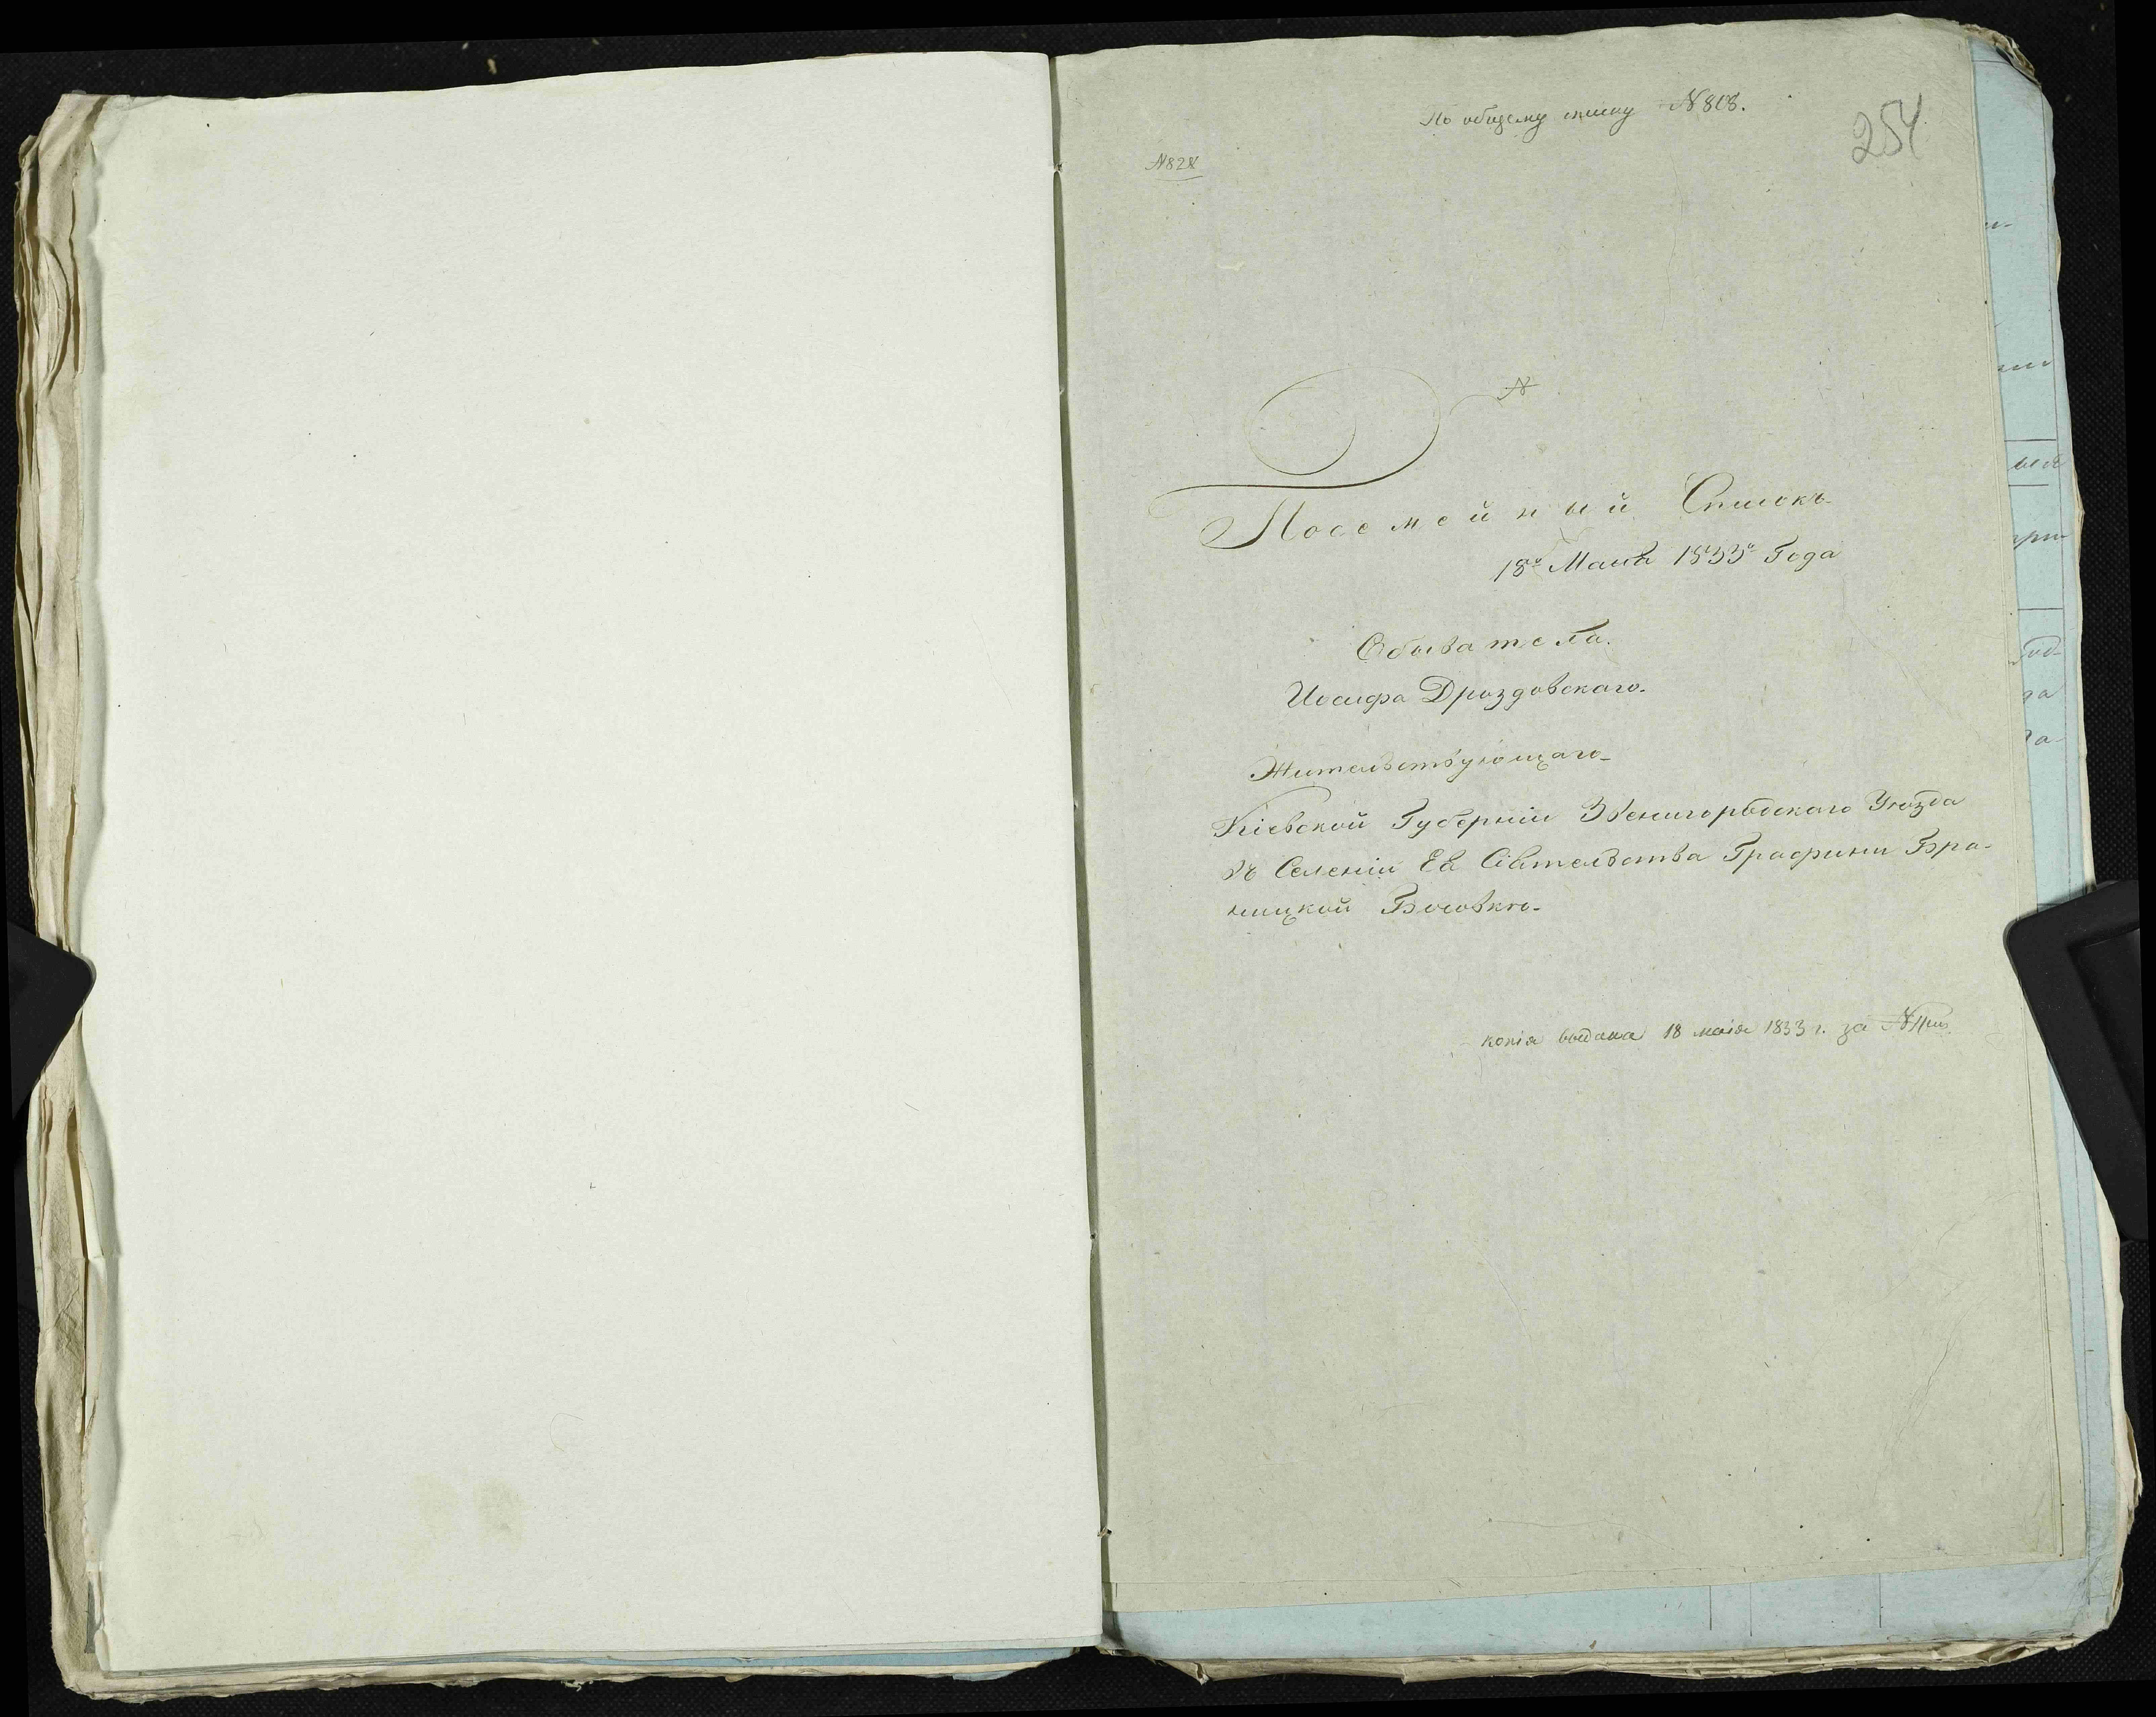 По общему списку №808.
254
№828
№
Посемейный Списокъ
18го Маия 1833го Года
Обывателя.
Иосифа Дроздовскаго.
Жительствующаго
Кіевской Губерніи Звенигородскаго Уѣзда
въ Селеніи Ея Сіятельства Графини Бра-
ницкой Босовкѣ.
копія выдана 18 маія 1833 г. за №